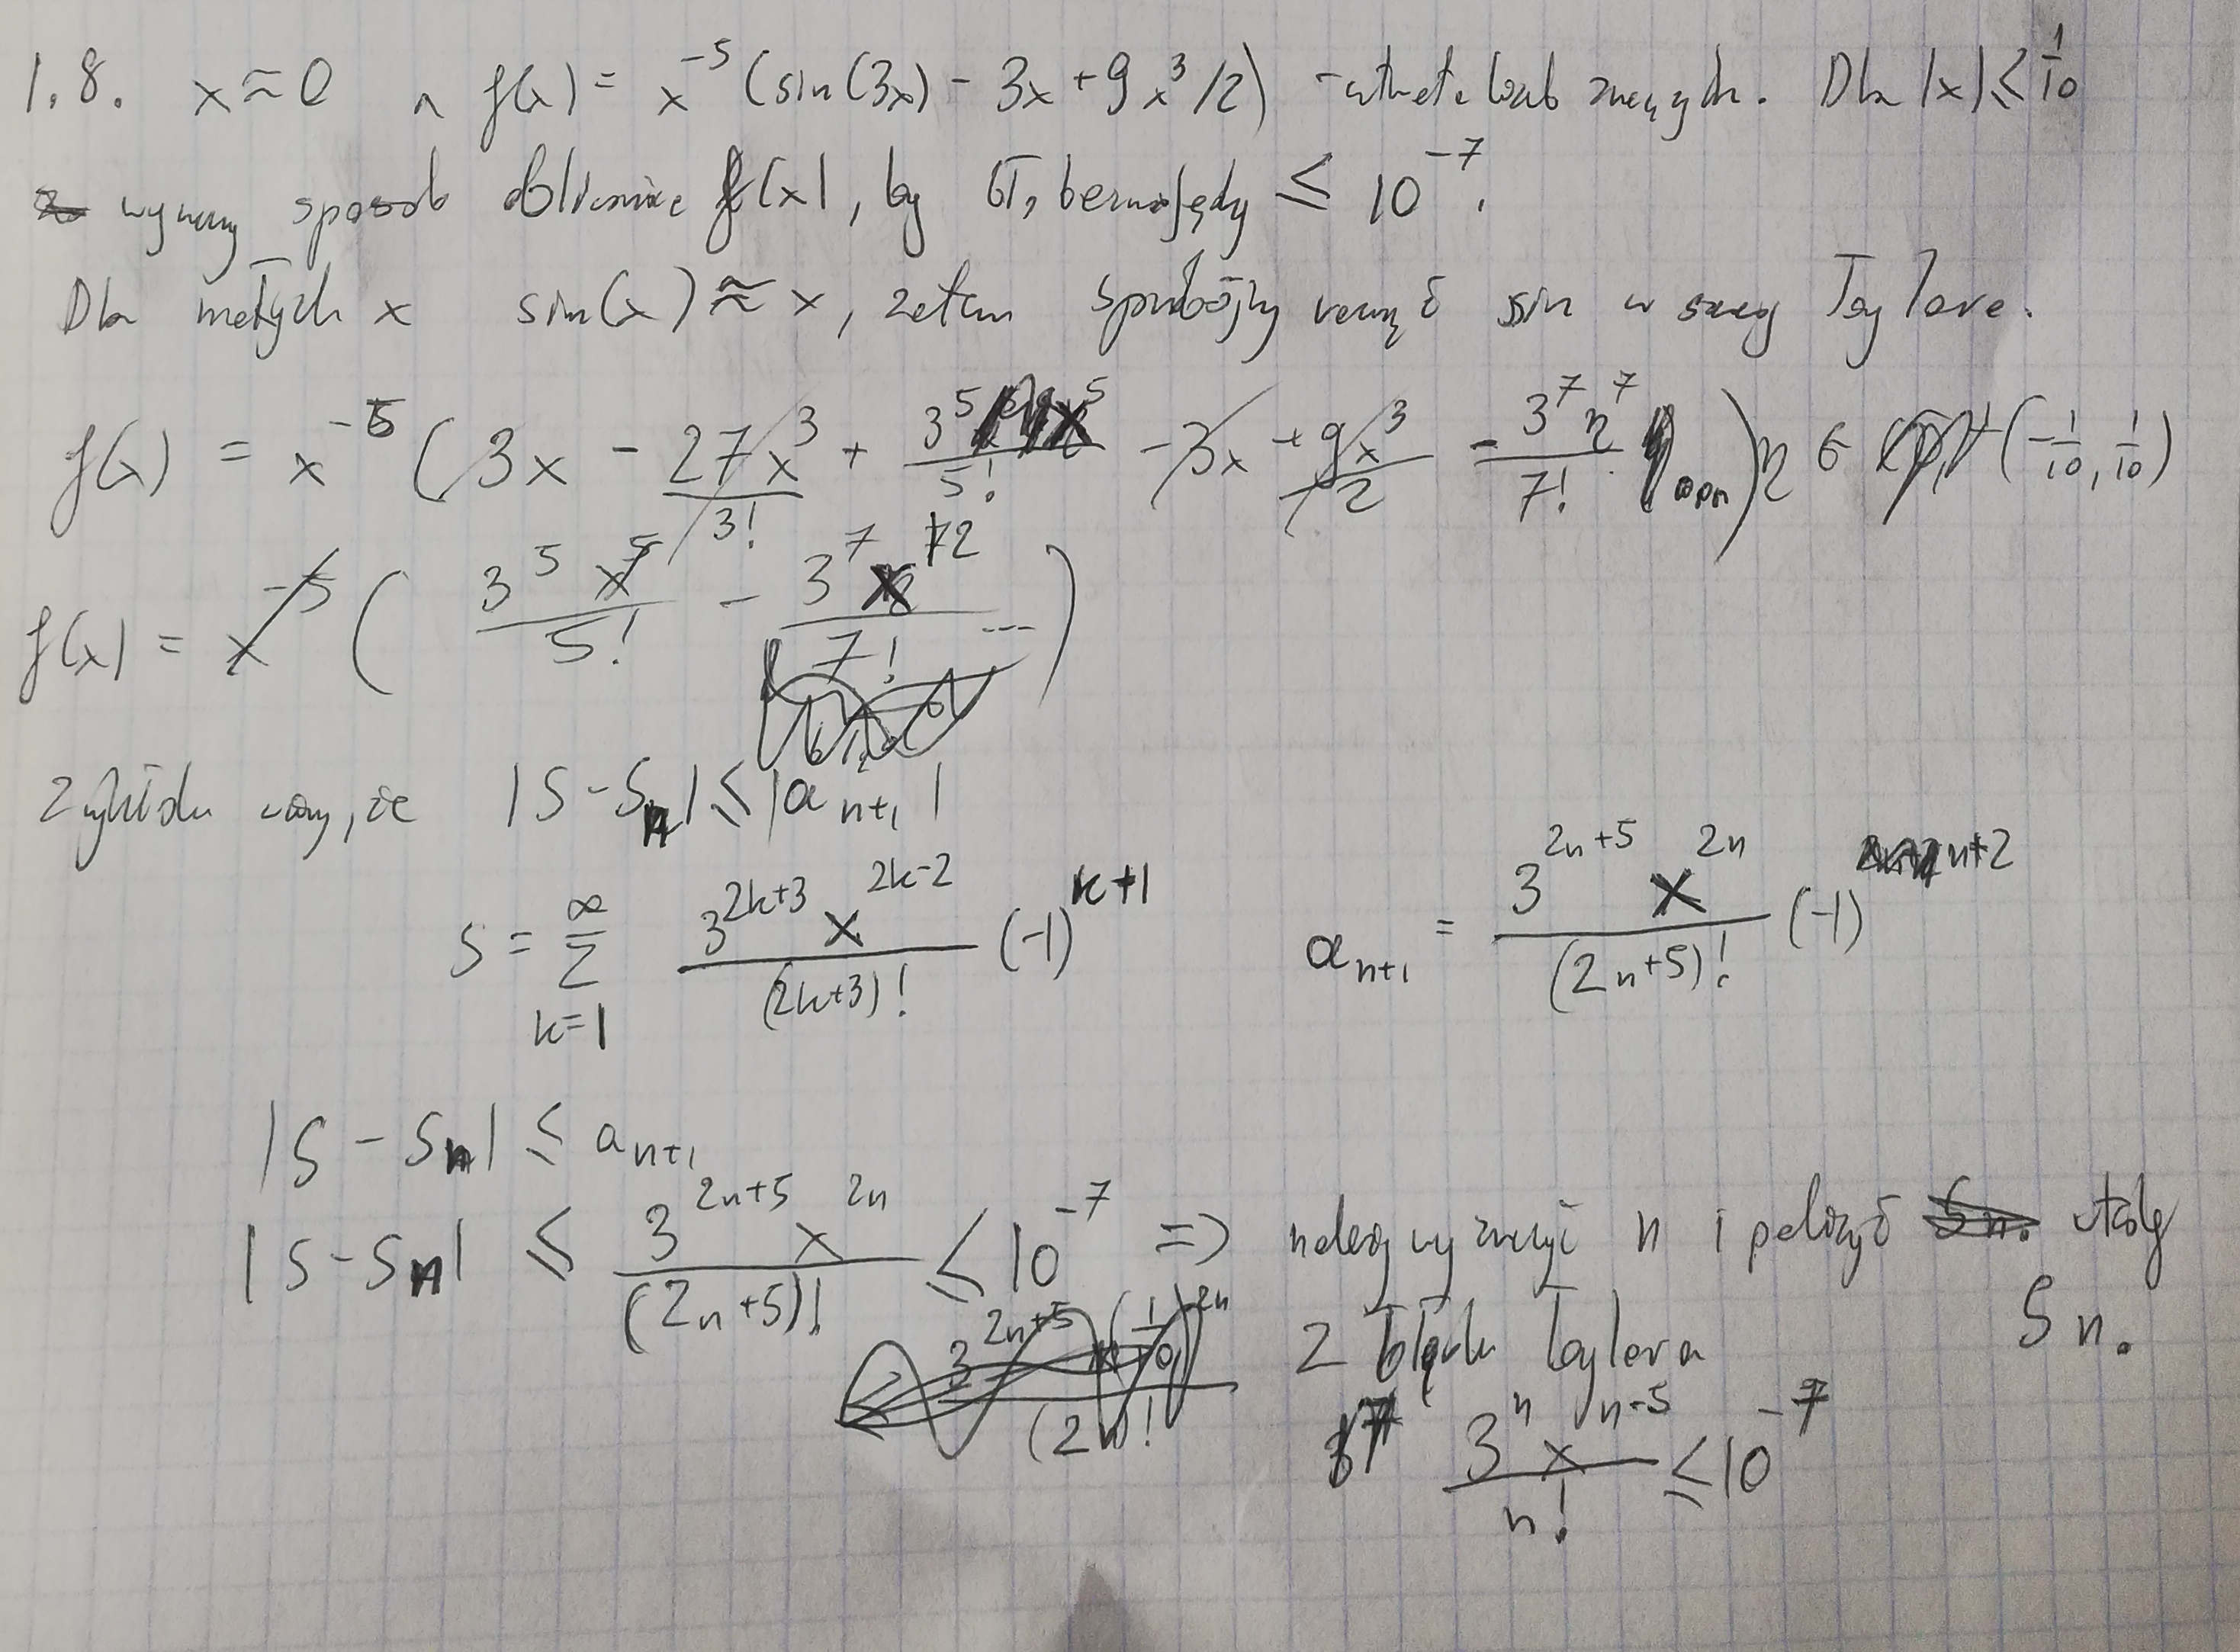 1.8. x≈0 ∧ f(x) = x^{-5} (sin(3x) - 3x + 9x^3/2) - utrata cyfr znaczących. Dla |x| ≤ 1/10
sposób obliczenia f(x), by bł. bezwzględny ≤ 10^{-7}.
Dla małych x sin(x) ≈ x, zatem spróbujmy rozwinąć sin w szereg Taylora.
f(x) = x^{-5} ( 3x - 27x^3/3! + 3^5 x^5/5! - 3x + 9x^3/2 - 3^7 η^7/7! ) η ∈ (-1/10, 1/10)
f(x) = x^{-5} ( 3^5 x^5/5! - 3^7 x^2/7! ... )
Z wykładu wiemy, że |S - S_n| ≤ |a_{n+1}|
S = Σ_{k=1}^{∞} 3^{2k+3} x^{2k-2}/(2k+3)! (-1)^{k+1} a_{n+1} = 3^{2n+5} x^{2n}/(2n+5)! (-1)^{n+2}
|S - S_n| ≤ a_{n+1}
|S - S_n| ≤ 3^{2n+5} x^{2n}/(2n+5)! ≤ 10^{-7} => należy wyznaczyć n i policzyć wtedy
S_n.
Z błędu Taylora
3^n x^{n-5}/n! ≤ 10^{-7}